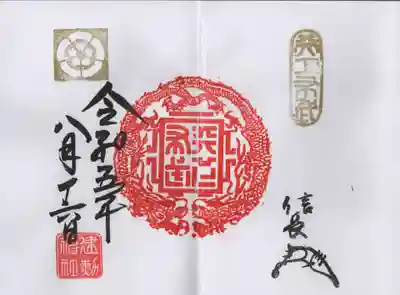 天下布武
信長
天下布武
令和五年
八月
建勲神社